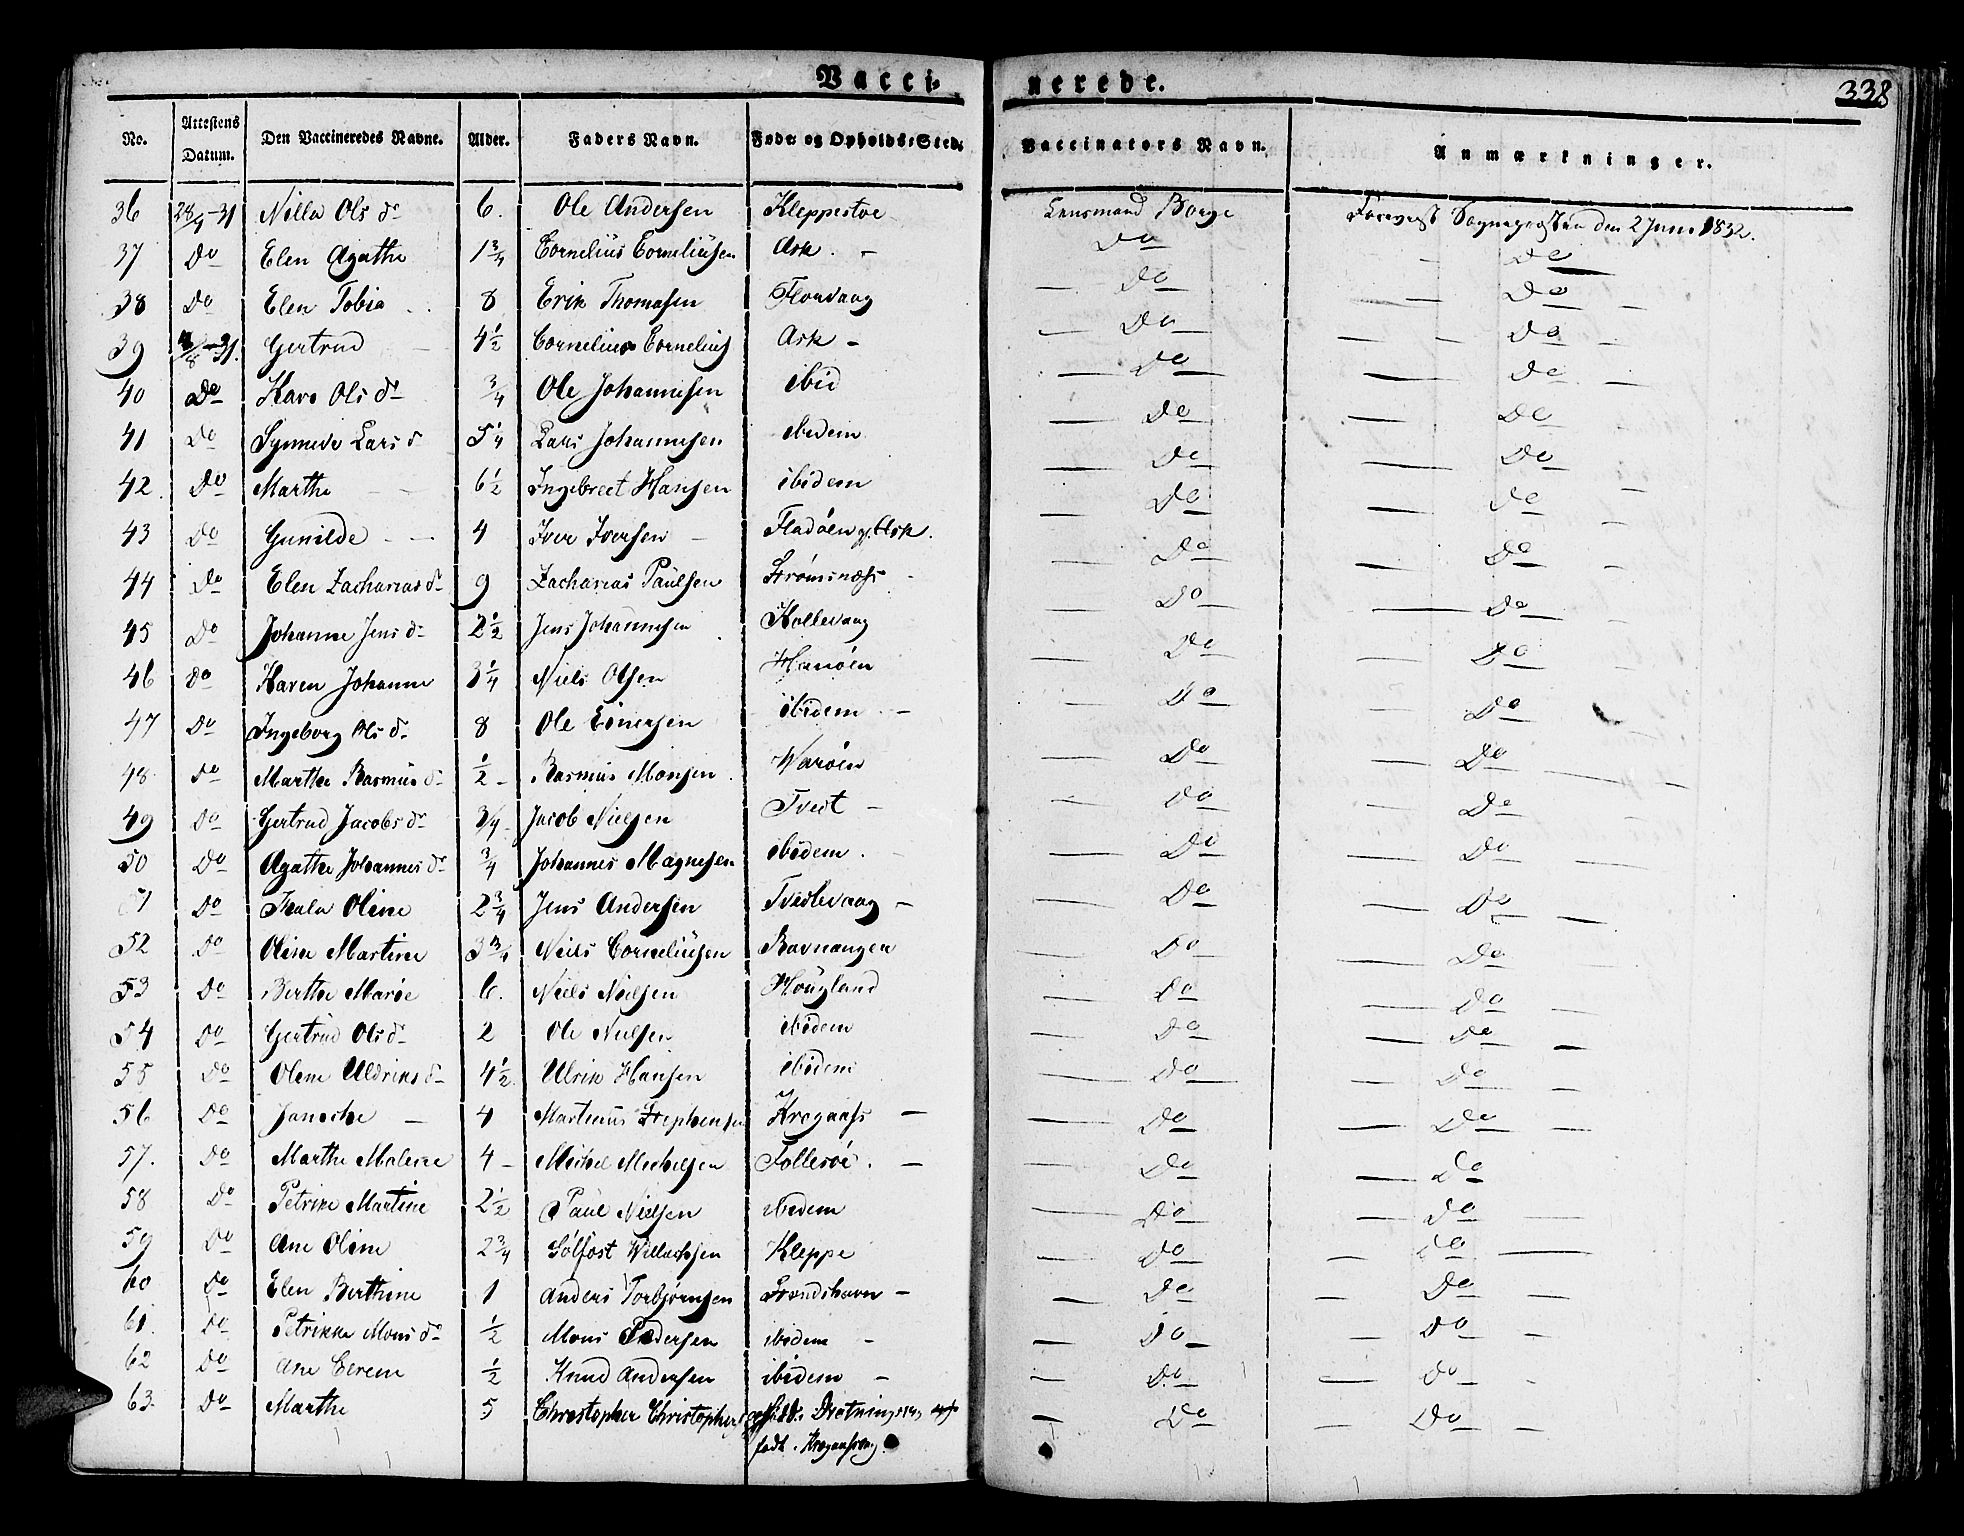 Vacci- nerede. 338
No. Attestens Datum. Den Vaccineredes Navne. Alder. Faders Navn. Føde og Opholds-Sted. Vaccinators Navn. Anmærkninger.
36 28/7-31 Nilla Ols d. 6. Ole Andersen Kleppestøe Lensmand Borge Foreviist Sognepræsten den 2 Juni 1832.
37 Do Elen Agathe 1 3/4 Cornelius Corneliusen Ask. - Do Do
38 Do Elen Tobia 8 Erik Thomasen Florvaag Do Do
39 4/8-31. Gertrud 4 1/2 Cornelius Cornelius Ask - Do Do
40 Do Kari Ols d. 3/4 Ole Johannesen ibid Do Do
41 Do Synneve Lars d 5 1/4 Lars Johannesen ibidem Do Do
42. Do Marthe 6 1/2 Ingebrect Hansen ibidem Do Do
43 Do Gunilde 4 Iver Iversen Fladøen Ask. Do Do
44 Do Elen Zacharias d. 9 Zacharias Paulsen Strømsnæss Do Do
45 Do Johanne Jens d. 2 1/2 Jens Johannesen Kollevaag Do Do
46 Do Karen Johanne 3 1/4 Niels Olsen Hanøen Do Do
47 Do Ingeborg Ols d. 8 Ole Einersen ibidem - Do Do
48. Do Marthe Rasmus d. 1/2 - Rasmus Monsen Warøen Do Do
49 Do Gertrud Jacobs d. 3/4 Jacob Nielsen Tveit - Do Do
50 Do Agathe Johannes d. 3/4 Johannes Magnesen ibidem. Do Do
51 Do Thala Oline 2 3/4 Jens Andersen Tveitevaag - Do Do
52 Do Oline Martine 3 3/4 Niels Corneliusen Ravnangen Do Do
53 Do Berthe Marie 6. Niels Nielsen Hougland Do Do
54 Do Gertrud Ols d. 2 Ole Nielsen ibidem Do Do
55 Do Olene Uldriks d. 4 1/2 Ulrik Hansen ibidem Do Do
56 Do Janeche - 4 Martinus Stephensen Krogaass - Do Do
57. Do Marthe Malene 4 - Michel Michelsen Follesøe. - Do Do
58 Do Petrine Martine 2 1/2 Paul Nielsen ibidem Do Do
59 Do Ane Oline 2 3/4 Solfost Willachsen Kleppe Do Do
60 Do Elen Berthine 1 Anders Torbjørnsen Strudshavn - Do Do
61. Do Petrikke Mons d. 1/2 Mons Pedersen ibidem - Do Do
62 Do Ane Eerene 1/2 Knud Andersen ibidem - Do Do
63. Do Marthe 5 Christopher Christophers Do Do
født. Krogaassvaag